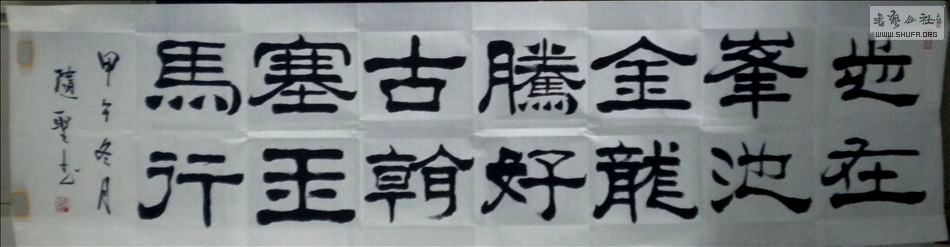 在
峯池
金龍
騰好
古翰
塞玉
馬行
甲午冬月
隨聖书
书艺公社
WWW.SHUFA.ORG